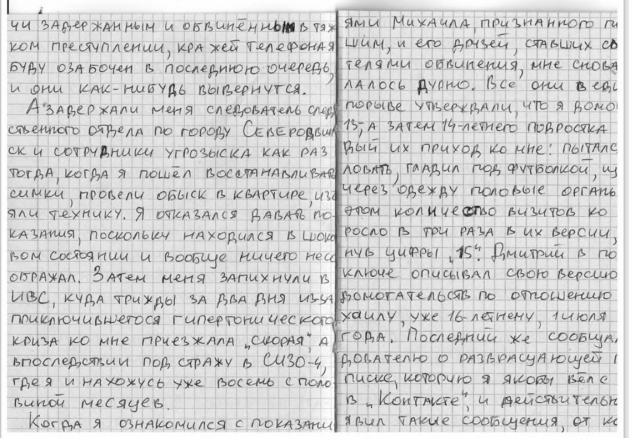 чи задержанным и обвинённым в тяж
ком преступлении, кражей телефоная
буду озабочен в последнюю очередь,
и они как-нибудь вывернутся.
А задержали меня следователь след
ственного отдела по городу Северодвин
ск и сотрудники угрозыска как раз
тогда, когда я пошёл восстанавливать
симки, провели обыск в квартире, изъ
яли технику. Я отказался давать по-
казания, поскольку находился в шоко
вом состоянии и вообще ничего несо
ображал. Затем меня запихнули в
ИВС, куда трижды за два дня из-за
приключившегося гипертонического
криза ко мне приезжала „скорая“, а
впоследствии под стражу в СИЗО-4,
где я и нахожусь уже восемь с поло
виной месяцев.
Когда я ознакомился с показани
ями Михаила, признанного
шим, и его друзей, ставших св
телями обвинения, мне снова
лалось дурно. Все они в еди
порыве утверждали, что я домо
13-, а затем 14-летнего подростка
дый их приход ко мне: пытался
ловать, гладил под футболкой,
через одежду половые органы
этом количество визитов ко
росло в три раза в их версии,
нув цифры „15“. Дмитрий в по
ключе описывал свою версию
домогательств по отношению
хаилу, уже 16-летнему, 1 июля
года. Последний же сообщал
дователю о развращающей
писке, которую я якобы вёл с
в „Контакте“, и действительн
явил такие сообщения, от ко